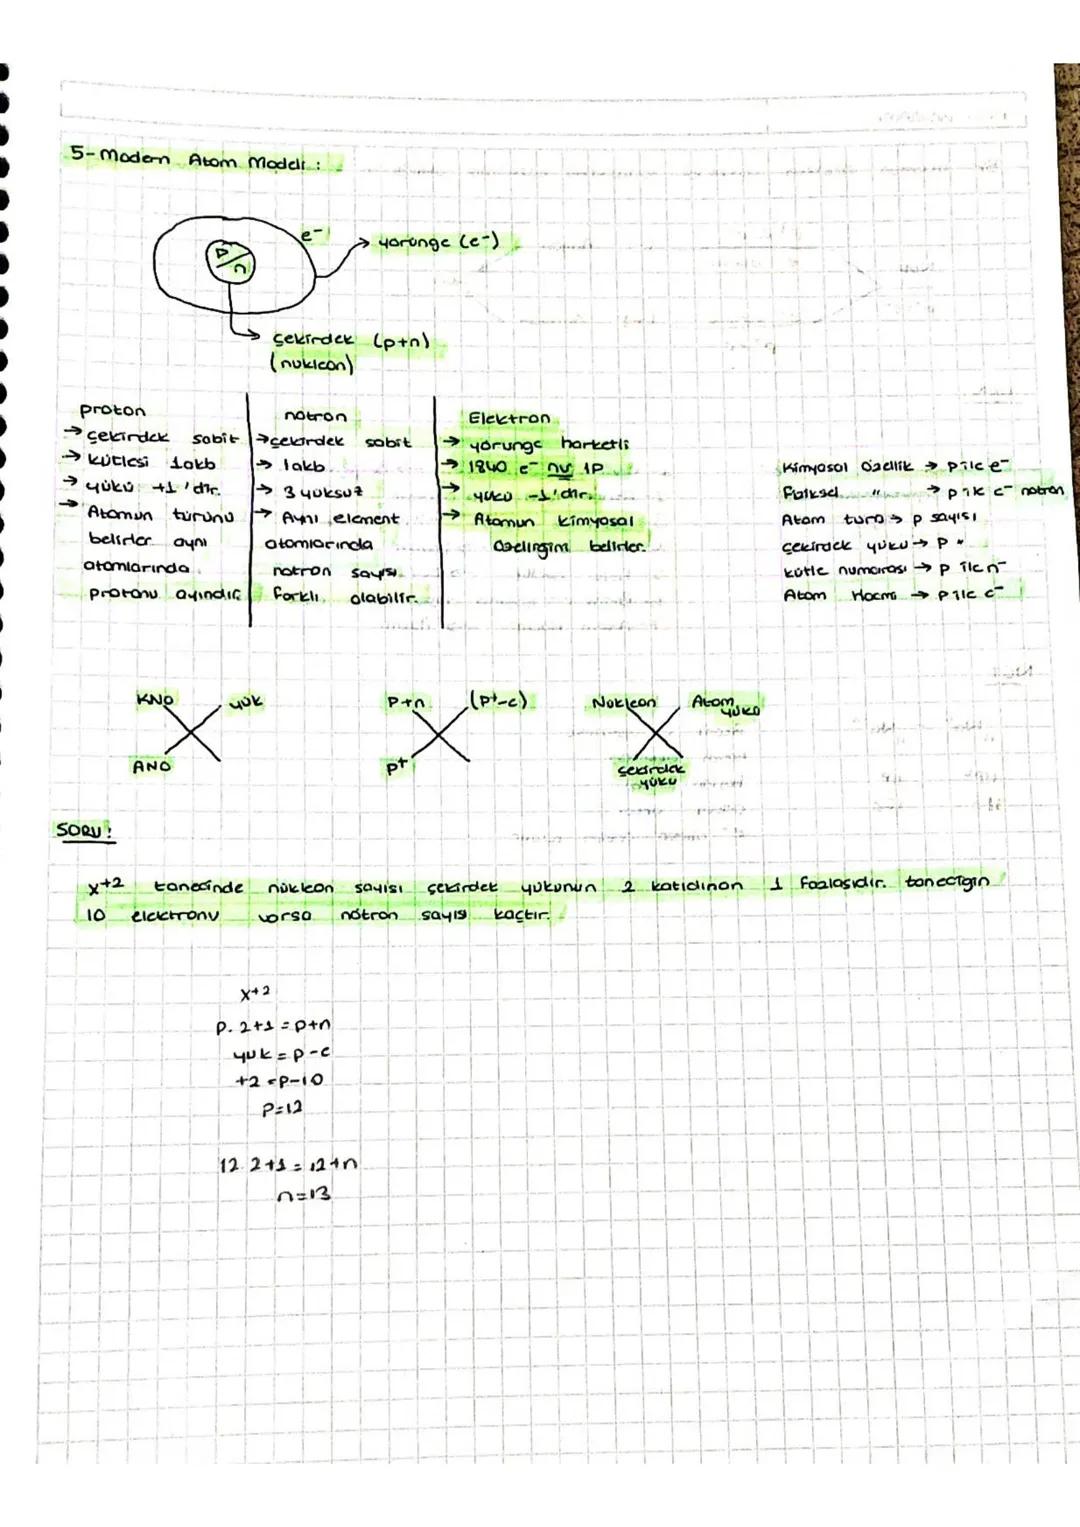 5- Modern Atom Modeli :
e-
yörünge (e-)
p/n
çekirdek (p+n)
(nukleon)
proton
→ çekirdek sabit
→ kütlesi 1akb
→ yükü +1'dir.
→ Atomun türünü
belirler aynı
atomlarında
protonu aynıdır
nötron
→ çekirdek sabit
→ 1akb
→ 3 yüksüz
→ Aynı element
atomlarında
nötron sayısı
farklı olabilir.
Elektron
→ yörünge harketli
→ 1840 e- nu 1P
→ yükü -1'dir.
→ Atomun kimyasal
özeliğini belirler.
Kimyasal Özellik → p ile e-
Fiziksel " → p ile e- nötron
Atom türü → p sayısı
Çekirdek yükü → p "
kütle numarası → p ile n-
Atom Hacmi → p ile e-
KNO yük
ANO
p+n (p+-e)
p+
Nükleon Atom yükü
çekirdek
yükü
SORU:
x+2 tanecinde nükleon sayısı çekirdek yükünün 2 katıdınan 1 fazlasıdır. taneciğin
10 elektronu varsa nötron sayısı kaçtır.
x+2
p. 2+1 = p+n
yük = p-e
+2 = p-10
p=12
12 2+1 = 12+n
n=13